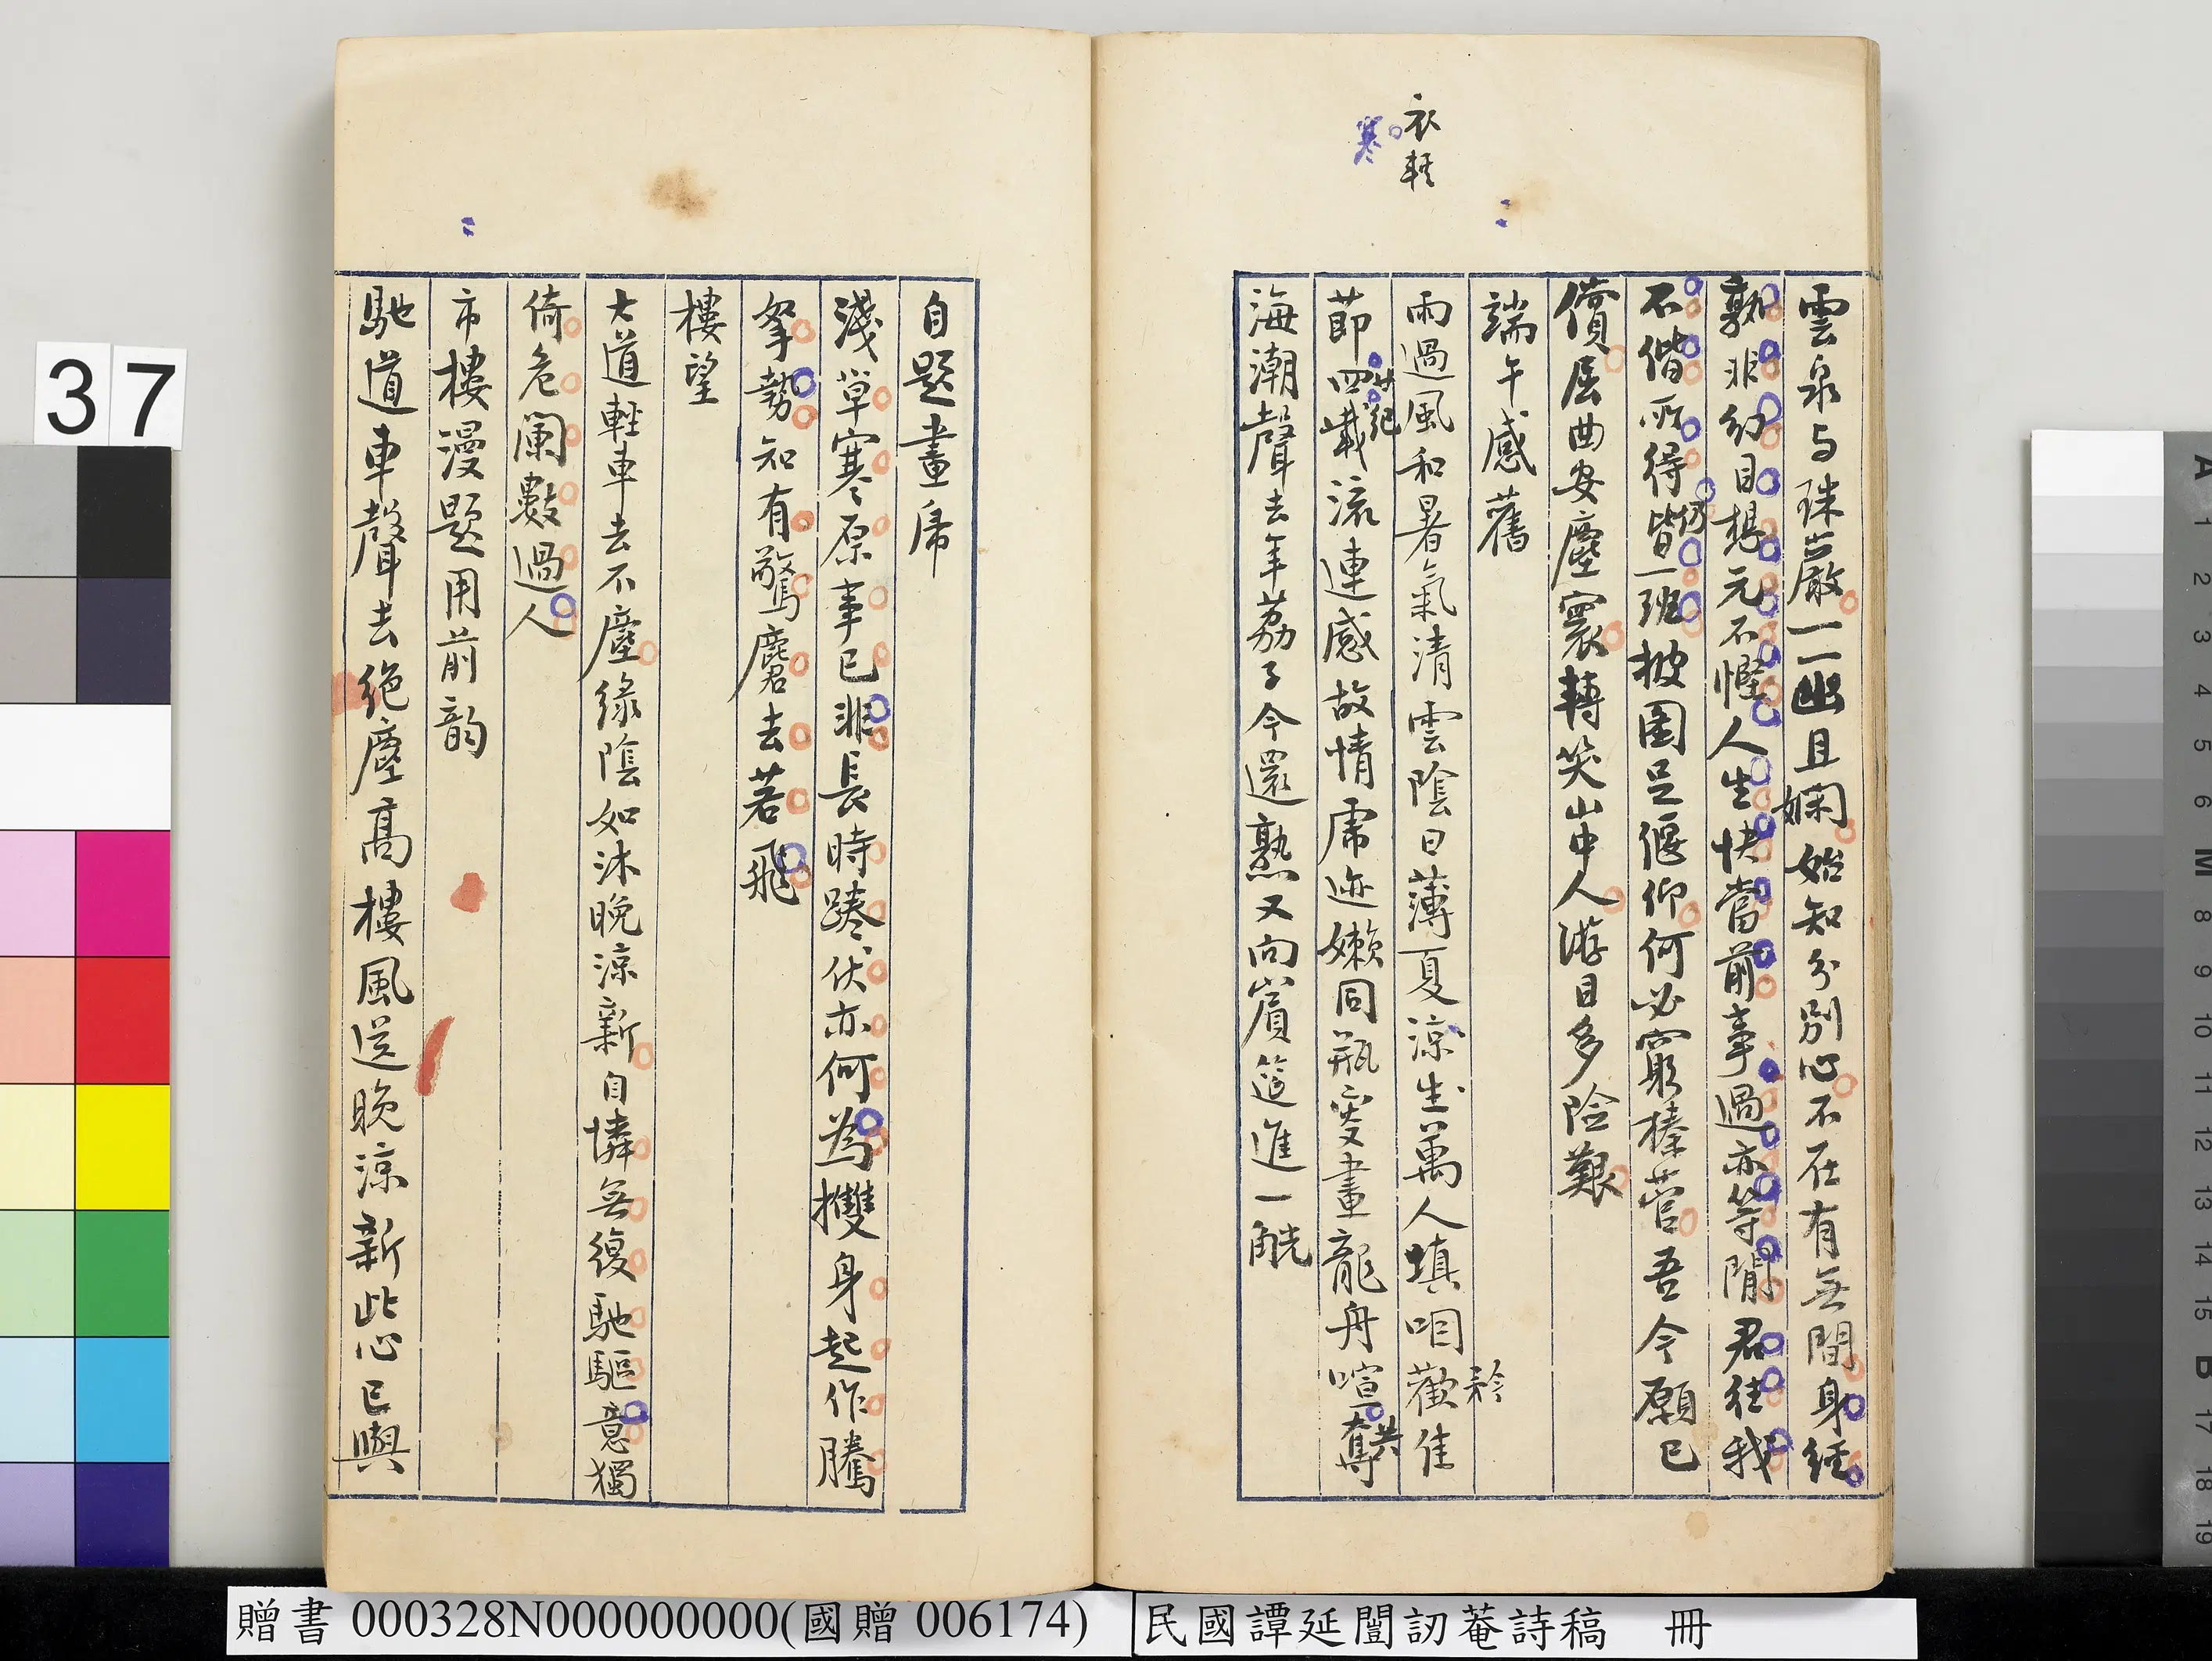 雲泉与珠巖一一幽且嫻始知分別心不在有無間身經
孰非幻目想元不慳人生快當前事過亦等閒君往我
不偕所得皆一班披圖足偃仰何必窮榛菅吾今願已
償居曲安塵寰轉笑山中人游目多險艱
仍
端午感舊
雨過風和暑氣清雲陰日薄夏涼生萬人填咽歡佳
矜
衣輕
寒
節四載流連感故情虎迹嫩同瓶突畫龍舟喧奪
廿紀
共
海潮聲去年荔子今還熟又向賓筵進一觥
自題畫虎
淺草寒原事已非長時踡伏亦何為攫身起作騰
拏勢知有驚麏去若飛
樓望
大道輕車去不塵綠陰如沐晚涼新自憐無復馳驅意獨
倚危闌數過人
市樓漫題用前韵
馳道車聲去絕塵高樓風送晚涼新此心已與
37
贈書 000328N000000000(國贈 006174)
民國譚延闓訒菴詩稿 冊
A 1 2 3 4 5 6 M 8 9 10 11 12 13 14 15 B 17 18 19